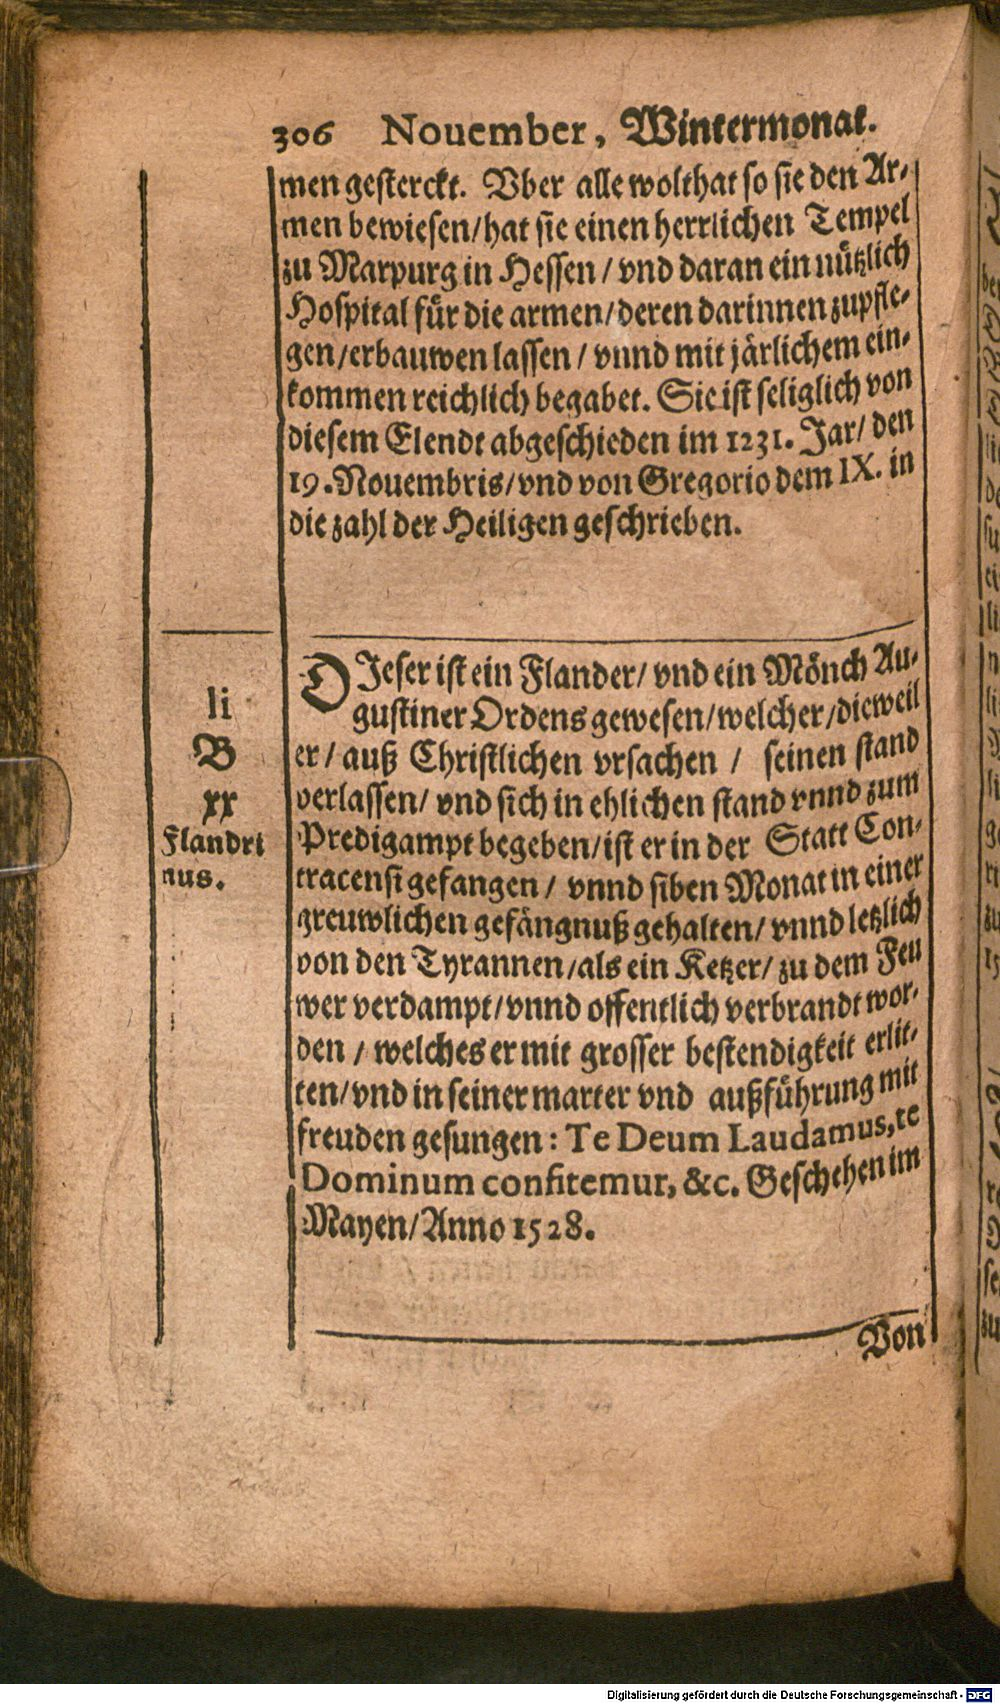 306 Nouember, Wintermonat.
men gesterckt. Vber alle wolthat so sie den Ar-
men bewiesen/hat sie einen herrlichen Tempel
zu Marpurg in Hessen / vnd daran ein nützlich
Hospital für die armen/deren darinnen zupfle-
gen/erbauwen lassen / vnnd mit järlichem ein-
kommen reichlich begabet. Sie ist seliglich von
diesem Elendt abgeschieden im 1231. Jar/ den
19. Nouembris/vnd von Gregorio dem IX. in
die zahl der Heiligen geschrieben.
li
B
xx
Flandri
nus.
DJeser ist ein Flander/ vnd ein Mönch Au-
gustiner Ordens gewesen/welcher/dieweil
er / auß Christlichen vrsachen / seinen stand
verlassen/ vnd sich in ehlichen stand vnnd zum
Predigampt begeben/ist er in der Statt Con-
tracensi gefangen / vnnd siben Monat in einer
greuwlichen gefängnuß gehalten/ vnnd letzlich
von den Tyrannen/als ein Ketzer/ zu dem Feu
wer verdampt/vnnd offentlich verbrandt wor-
den / welches er mit grosser bestendigkeit erlit-
ten/vnd in seiner marter vnd außführung mit
freuden gesungen: Te Deum Laudamus, te
Dominum confitemur, &c. Geschehen im
Mayen/Anno 1528.
Von
Digitalisierung gefördert durch die Deutsche Forschungsgemeinschaft - DFG